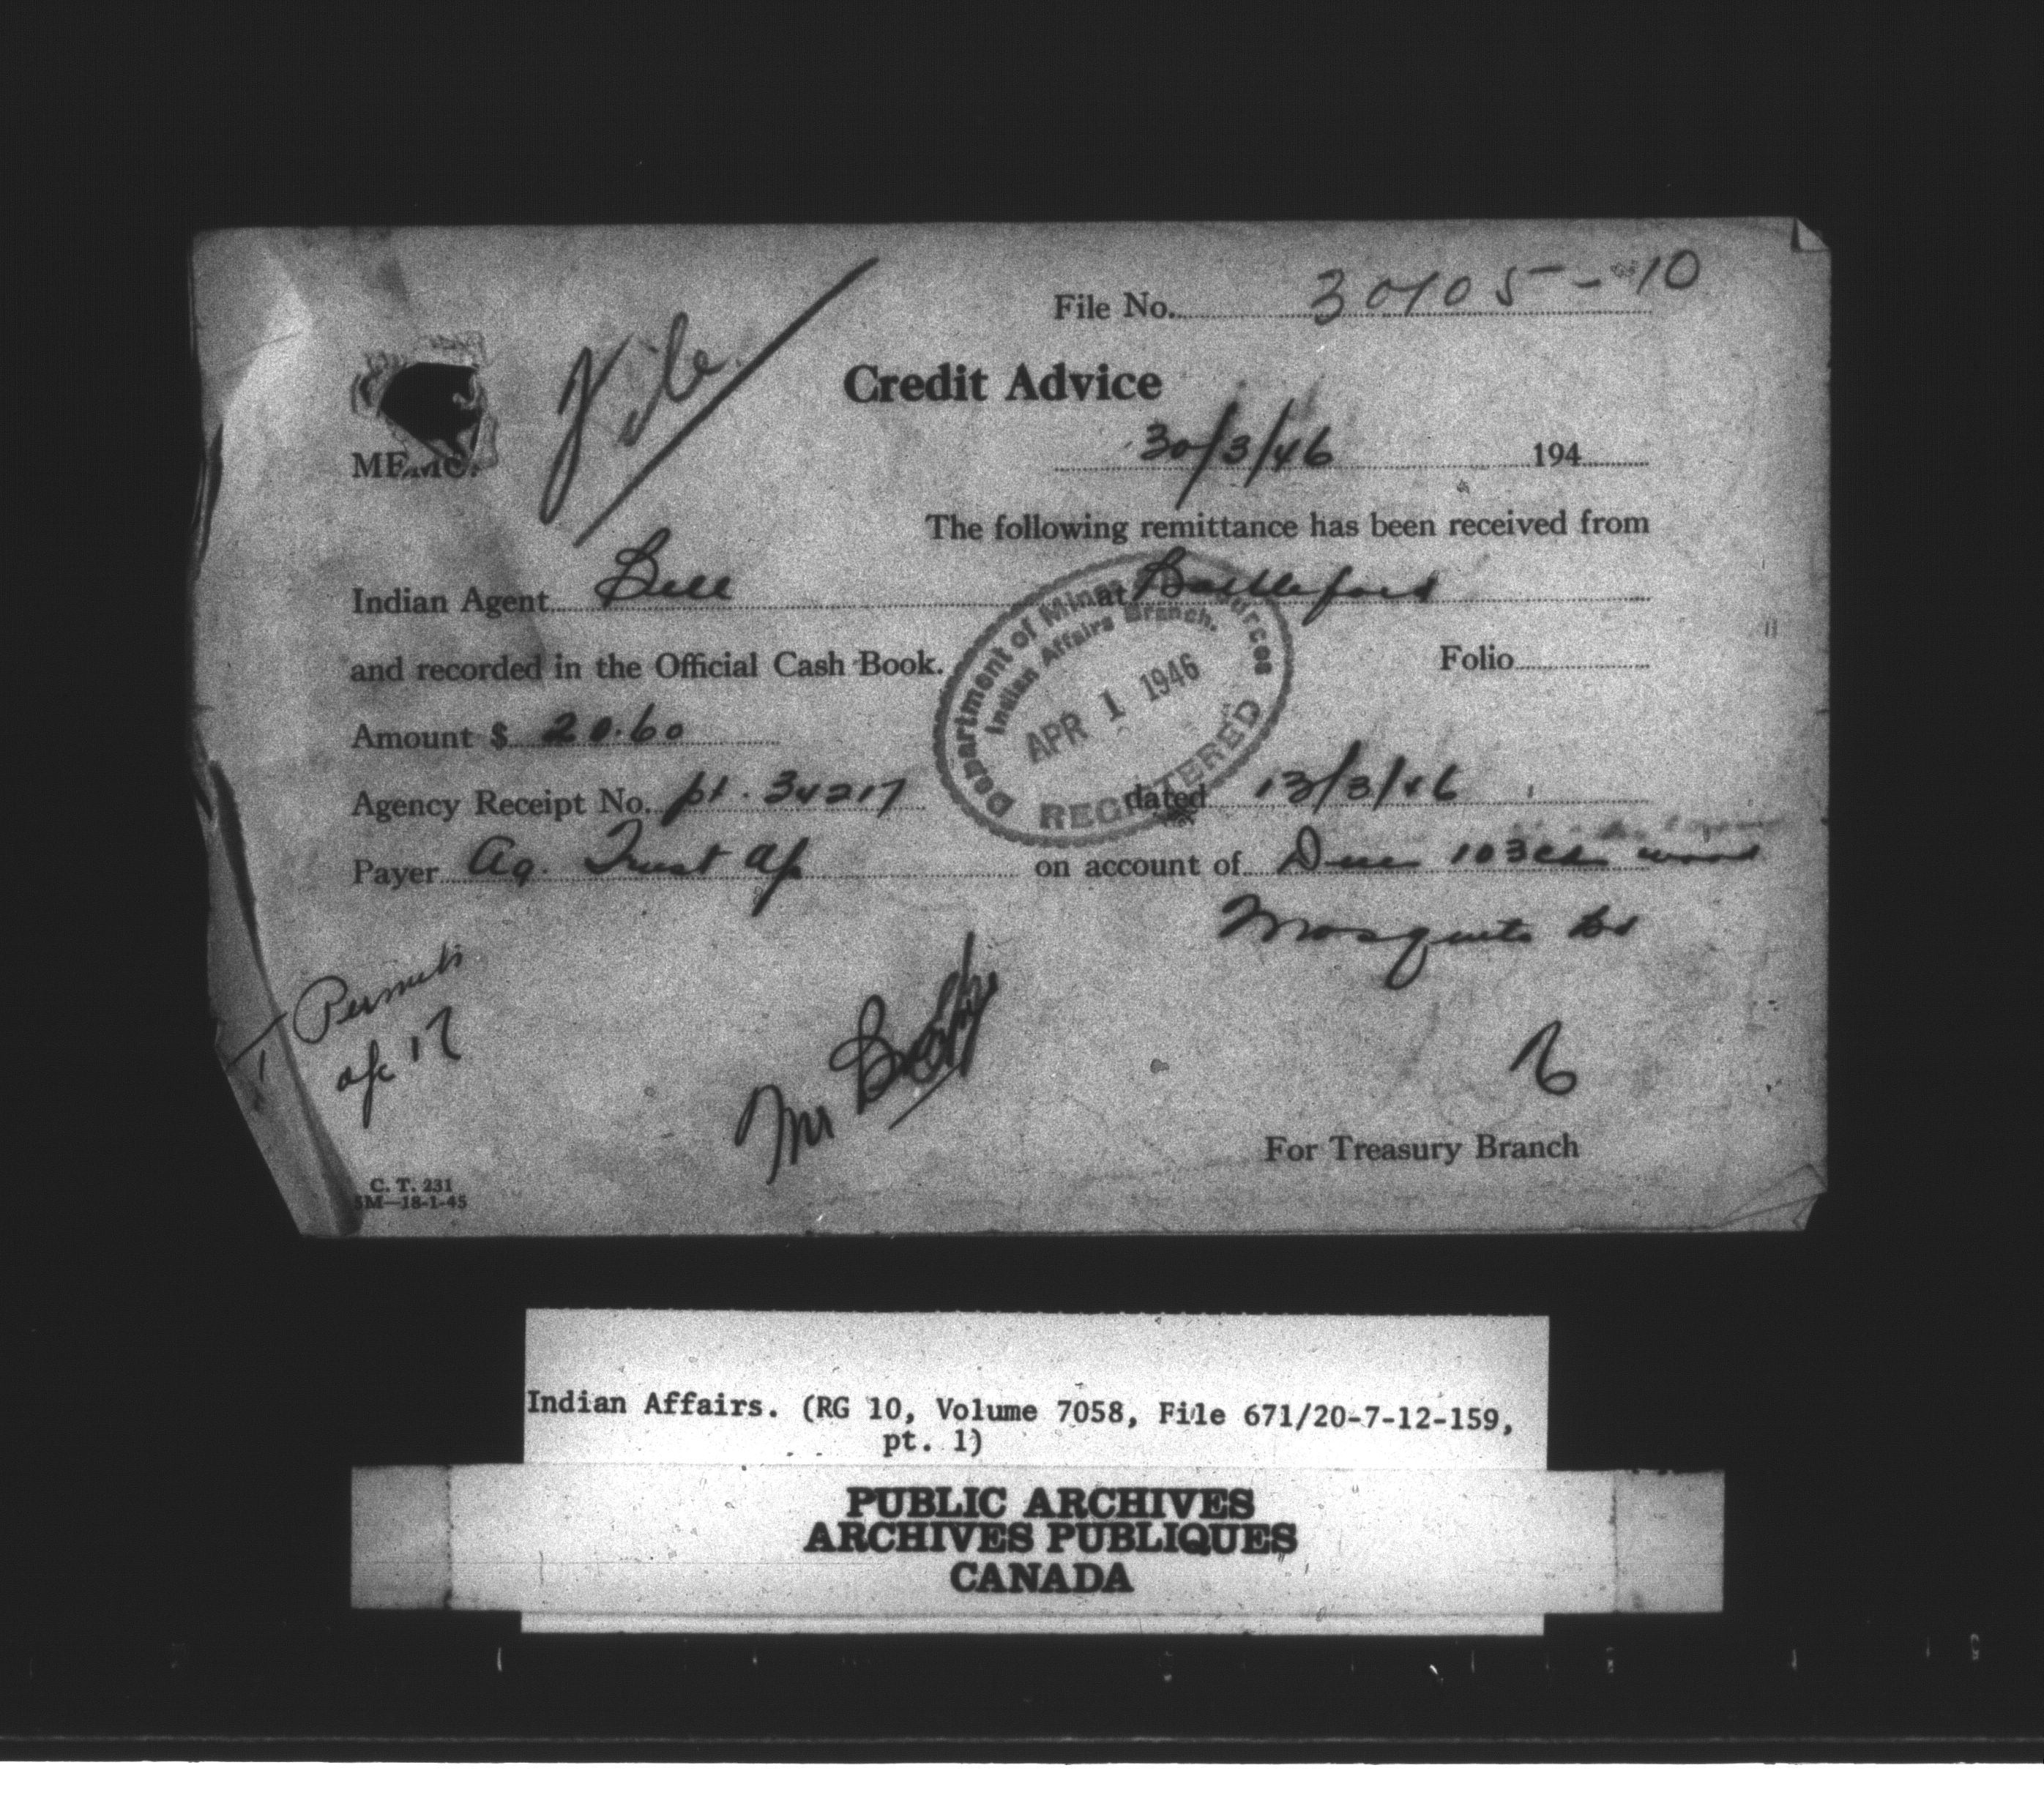 File No. 30105-10
File
Credit Advice
30/3/46 194
MEMO.
The following remittance has been received from
Indian Agent Bell at Battleford
and recorded in the Official Cash Book. Folio
Department of Mines Resources
Indian Affairs Branch.
APR 1 1946
REGISTERED
Amount $ 20.60
Agency Receipt No. pt. 34217 dated 13/3/46
Payer Ag. Trust a/c on account of Dues 103 cds wood
Mosquito
Permits
a/c 17
Mr
For Treasury Branch
C. T. 231
5M—18-1-45
Indian Affairs. (RG 10, Volume 7058, File 671/20-7-12-159,
pt. 1)
PUBLIC ARCHIVES
ARCHIVES PUBLIQUES
CANADA